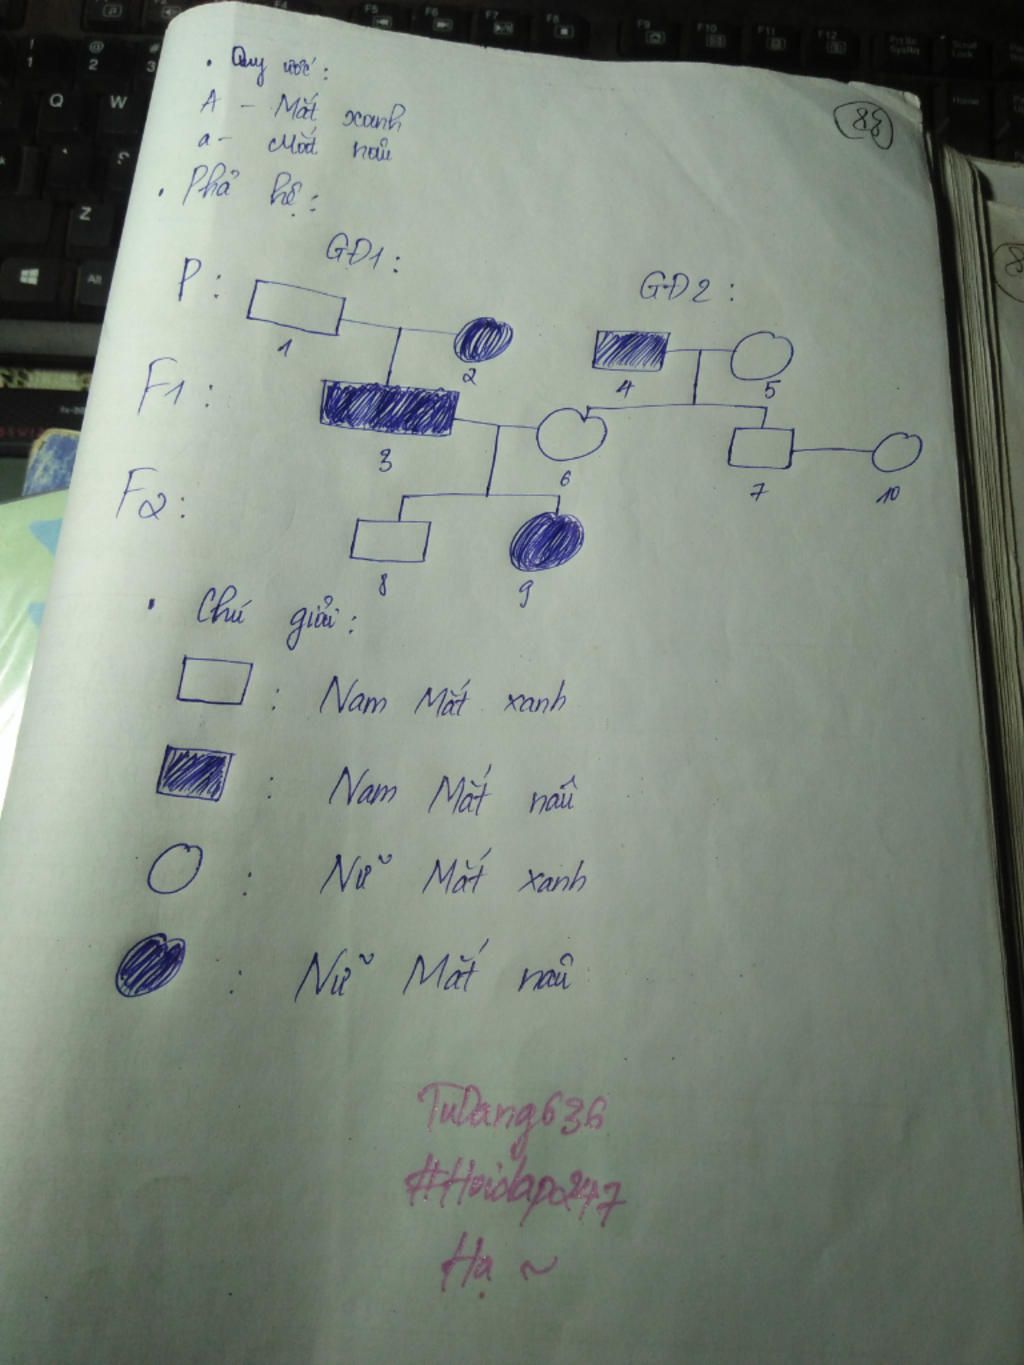 • Quy ước:
A - Mắt xanh
a - Mắt nâu
• Phả hệ:
GĐ1:
GĐ2:
P:
1
2
4
5
F1:
3
6
7
10
F2:
8
9
• Chú giải:
: Nam Mắt xanh
: Nam Mắt nâu
: Nữ Mắt xanh
: Nữ Mắt nâu
TuDang636
#Hoidap247
Hạ ~